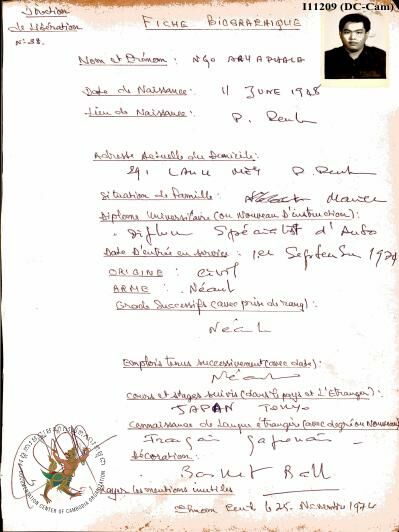 I11209 (DC-Cam)
Direction
de Libération
N: 38.
FICHE BIOGRAPHIQUE
Nom et Prénom : NGO
Date de Naissance : 11 JUNE 1948
Lieu de Naissance : P. Penh
Adresse Actuelle du Domicile :
P. Penh
Situation de Famille :
Diplome Universitaire (ou Nouveau D'instruction) :
Diplome Spécialist d'Auto
Date D'entrée en service : 1er Septembre 1974
ORIGINE : Civil
ARME : Néant
Grade Successifs (avec prise de rang) :
Néant
Emplois tenus successivement (avec date) :
Néant
Cours et stages suivis (dans le pays et L'Etranger) :
JAPAN TOKYO
Connaissance de Langue étranger (avec degré ou Nouveau)
Français Japonais
Décoration :
Basket Ball
Rayer les mentions inutiles
Phnom Penh le 25 Novembre 1974
DOCUMENTATION CENTER OF CAMBODIA